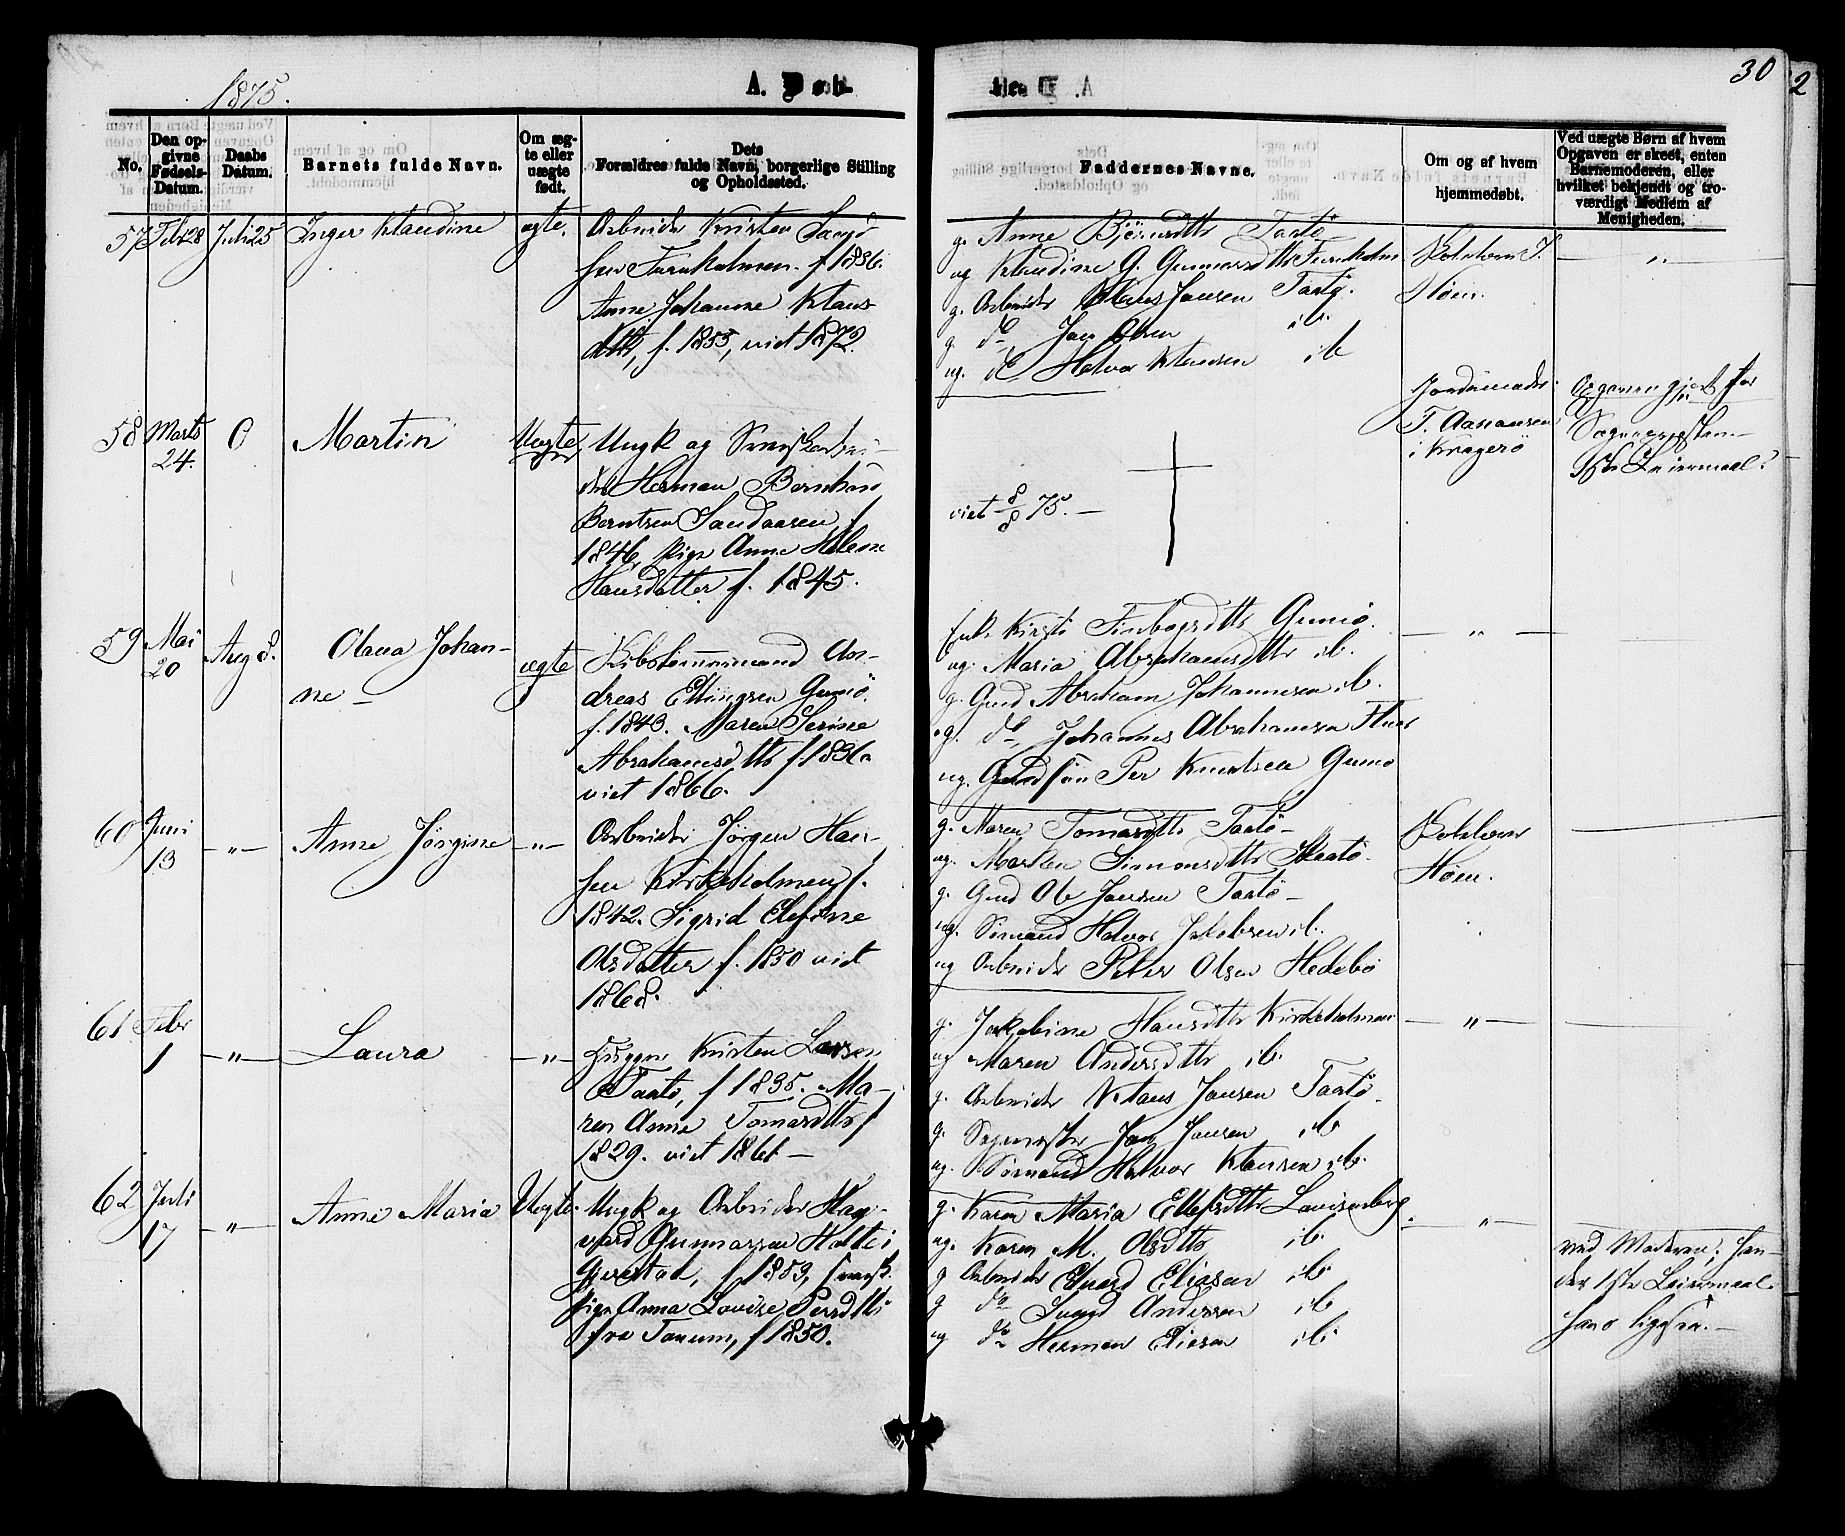 1875.
A. Døb.
30
2
No.
Den opgivne Fødsels-Datum.
Daabs Datum.
Barnets fulde Navn.
Om ægte eller uægte født.
Dets Forældres fulde Navn, borgerlige Stilling og Opholdssted.
Faddernes Navne.
Om og af hvem hjemmedøbt.
Ved uægte Børn af hvem Opgaven er skeet, enten Barnemoderen, eller hvilket bekjendt og troværdigt Medlem af Menigheden.
57 Febr 28 Juli 25 Inger Klaudine ægte.
Arbeider Kristen
f. 1836.
Anne Johanne Klaus
dtr, f. 1853, viet 1872.
g. Anne Bjørnsdtr Taatø
ug Klaudine G. Gunnarsdtr Furuholmen
g. Arbeider Klaus Jansen Taatø.
g. do Jan Olsen ib.
ug. do Halvor Klausen ib
"
58 Marts 24. 0 Martin Uægte
Ungk og
Herman Bernhard
Berntsen Sandaasen f
1846, Pige Anne Helene
Hansdatter f. 1845.
viet 8/8 75. —
Jordemoder
T. Aanansen
i Kragerø
Opgaven gjort for
Sognepresten
1ste Leiermaal.
59 Mai 20 Aug 8. Olava Johan-
ne — ægte
An-
dreas Ellingsen Gumø
f. 1843. Maren Serine
Abrahamsdtr f. 1836
viet 1866.
Enke Kirsti Finbogsdtr Gumø
ug. Maria Abrahamsdtr ib.
g. Gmd Abraham Johannesen ib.
g. do Johannes Abrahamsen
ug. Gmdsøn Per Knutsen Gumø
— " —
60 Juni 13 — " — Anne Jørgine — " —
Arbeider Jørgen Han-
sen Kirkeholmen f.
1842. Sigrid Elefine
Olsdatter f. 1850 viet
1868.
g. Maren Tomasdtr Taatø —
ug. Marthe Simonsdtr Skaatø.
g. Gmd Ole Jansen Taatø —
ug. Sømand Halvor Jakobsen ib.
ug Arbeider Peter Olsen Hedebø
61 Febr 1 — " — Laura — " —
Kristen Larsen
Taatø, f 1835. Ma-
ren Anne Tomasdtr f
1829. viet 1861 —
g. Jakobine Hansdtr Kirkeholmen
ug Maren Andersdtr ib.
g. Arbeider Klaus Jansen Taatø.
g. Jan Jansen ib
ug. Sømand Halvor Klausen ib.
— " —
62 Juli 17 — " — Anne Maria Uægte.
Ungk og Arbeider Hag-
vard Gunnarsen Holte i
Gjerstad, f 1853,
Pige Anna Lovise Persdtr
fra Tanum, f 1850.
g. Karen Maria Ellefsdtr Lovisenberg
ug. Karen M. Olsdtr ib.
g Arbeider Edvard Eliasen ib
g do Svend Andersen ib
ug do Herman Eliasen ib.
— " —
ved Moderen; hen-
des 1ste Leiermaal.
hans ligesaa. —